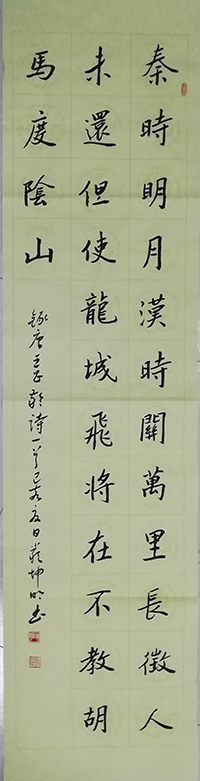 秦時明月漢時關萬里長徵人
未還但使龍城飛將在不教胡
馬度陰山
錄唐王昌齡詩一首己亥夏日坤明書